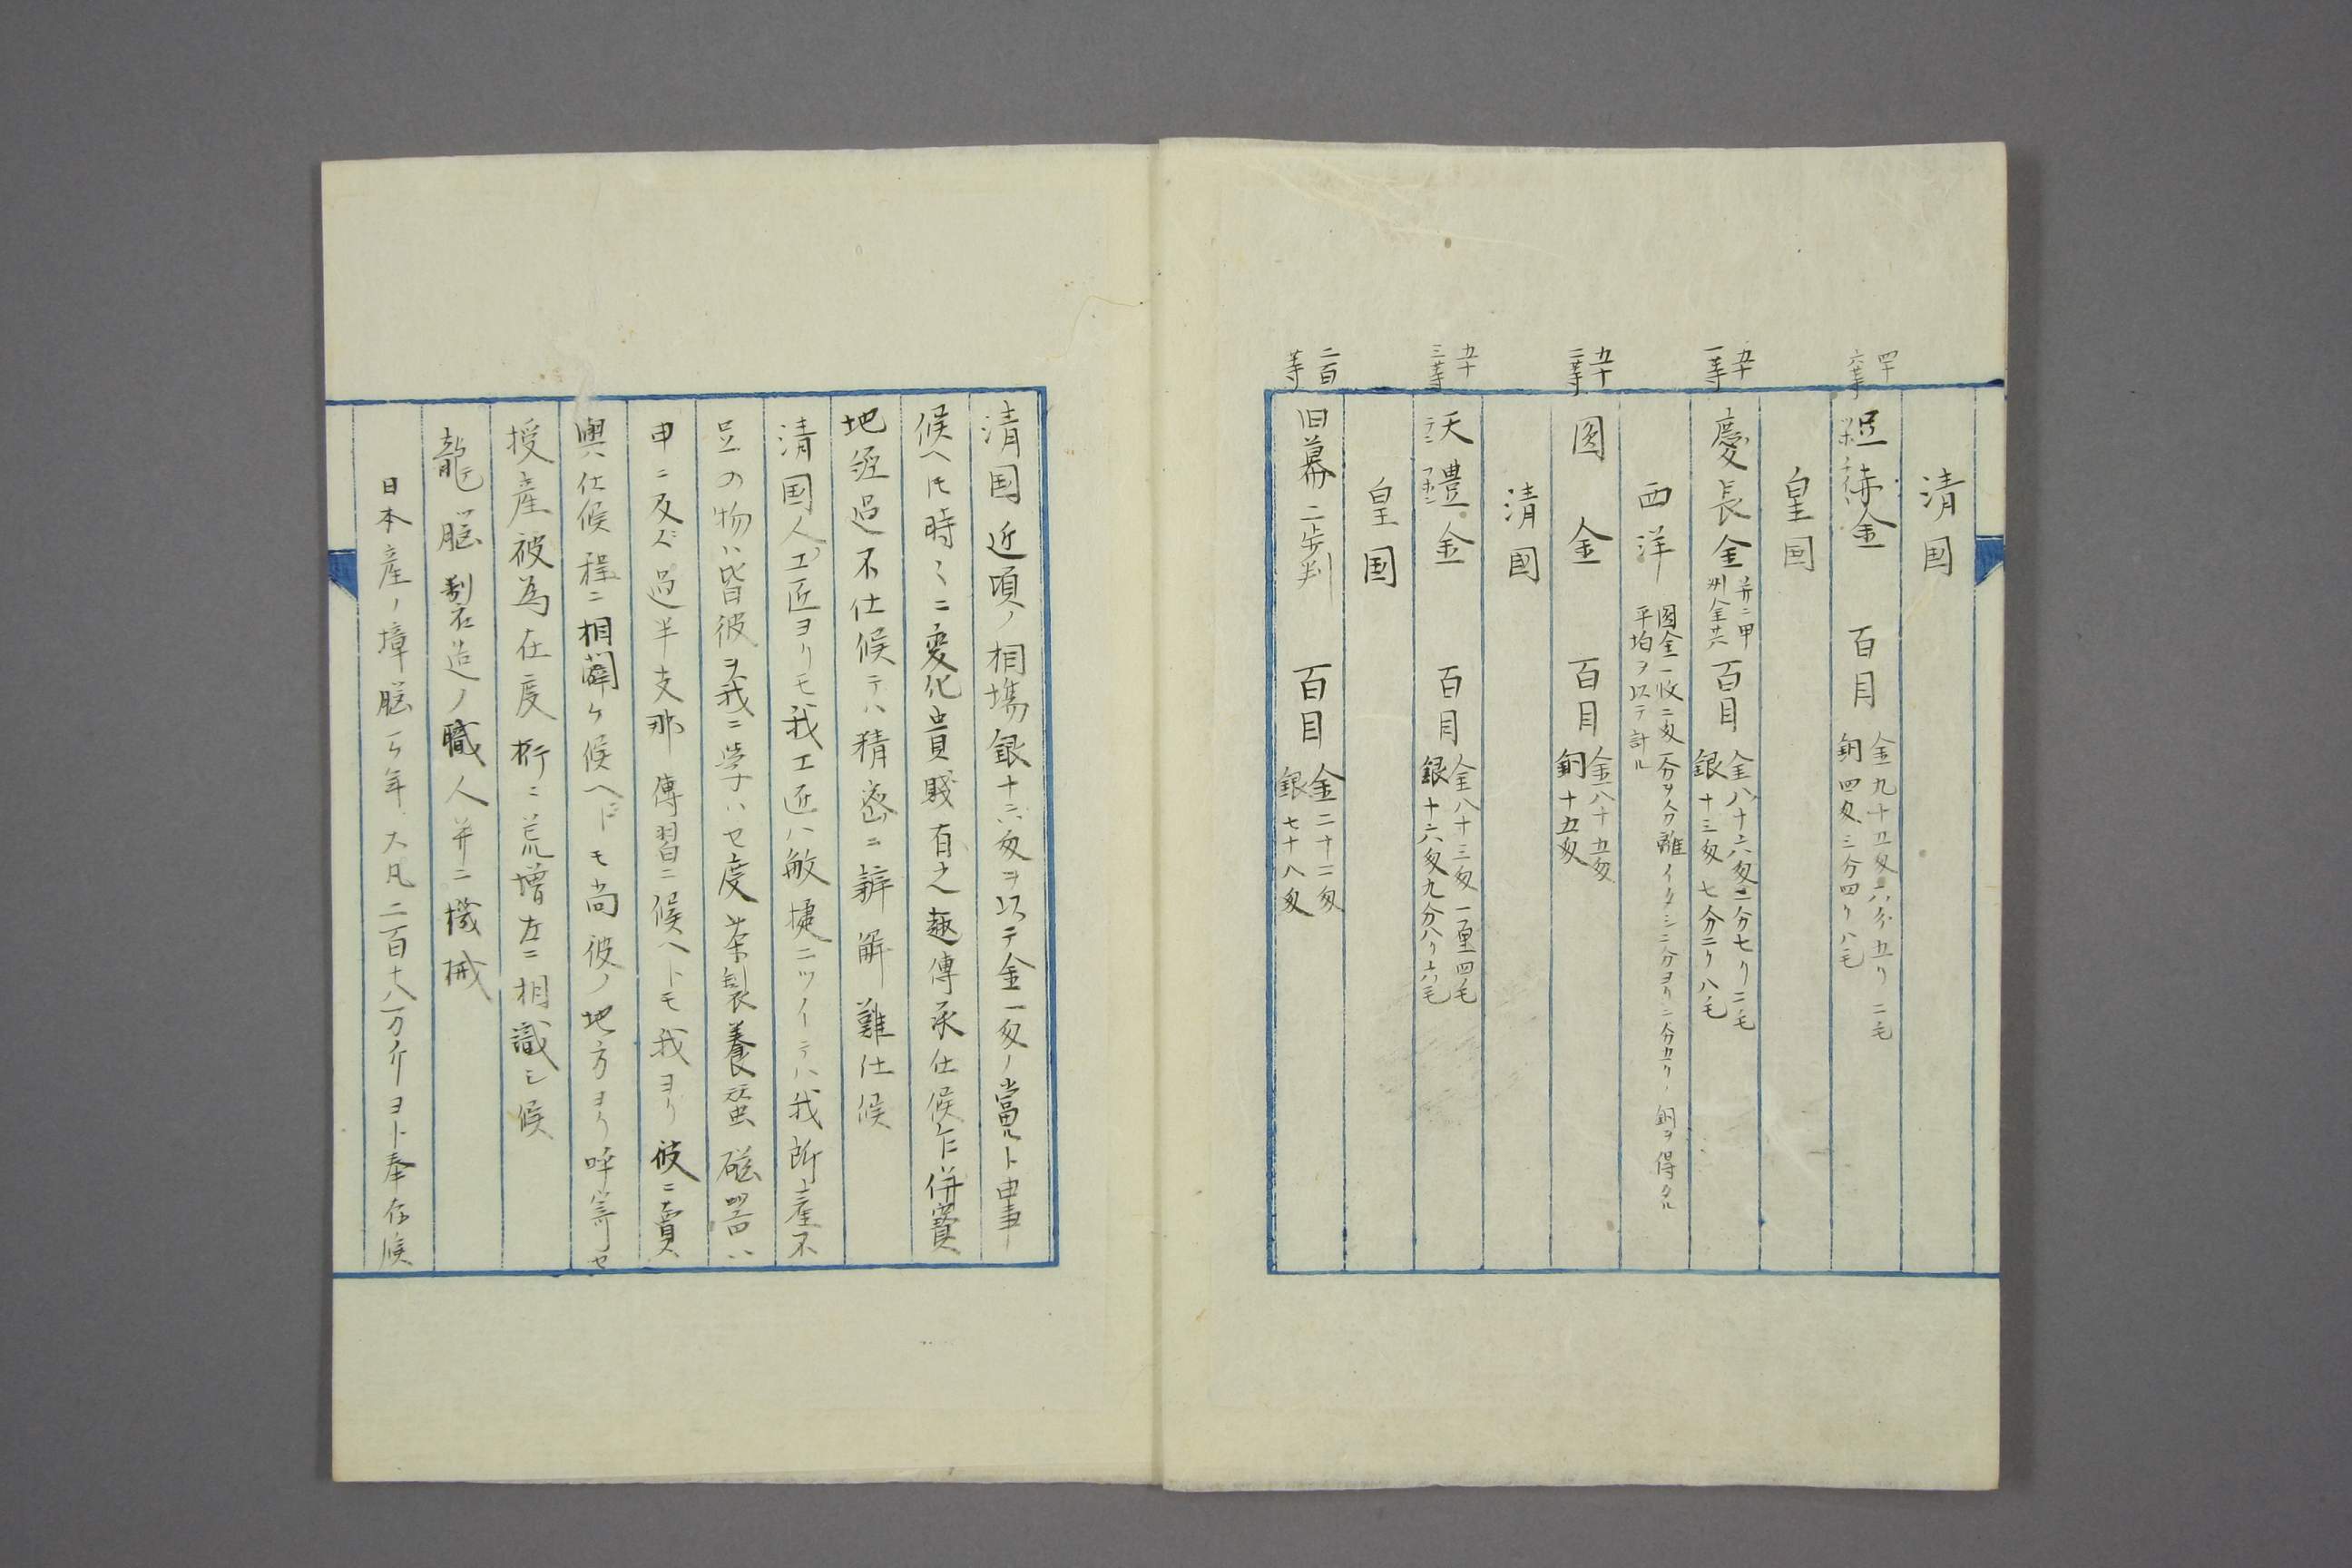 清国
四十
六等
金 百目 金九十五匁六分五リ二毛
銅四匁三分四リ八毛
皇国
五十
一等
慶長金 并ニ甲
州金共 百目 金八十六匁二分七リ二毛
銀十三匁七分二リ八毛
西洋 圓金一枚二匁一分ヲ分離イタシ二分ヨリ二分五リノ銅ヲ得タル
平均ヲ以テ計ル
五十
二等
圓金 百目 金八十五匁
銅十五匁
清国
五十
三等
天禮金 百目 金八十三匁一厘四毛
銀十六匁九分八リ六毛
皇国
二百
等
旧幕二歩判 百目 金二十二匁
銀七十八匁
清国近頃ノ相塲銀十六匁ヲ以テ金一匁ノ當ルト申事
候ヘ𪜈時々ニ変化貴賤有之趣傳承仕候乍併實
地経過不仕候テハ精密ニ辨解難仕候
清国人工匠ヨリモ我工匠ハ敏捷ニツイテハ我所産不
足ノ物ハ皆彼ヲ我ニ學ハセ度茶製養蚕磁器ハ
申ニ及ズ過半支那傳習ニ候ヘトモ我ヨリ彼ニ賣
與仕候程ニ相開ケ候ヘドモ尚彼ノ地方ヨリ呼寄セ
授産被為在度析ニ荒増左ニ相識シ候
龍脳製造ノ職人并ニ機械
日本産ノ樟脳一ケ年大凡二百十八万斤ヨト奉存候